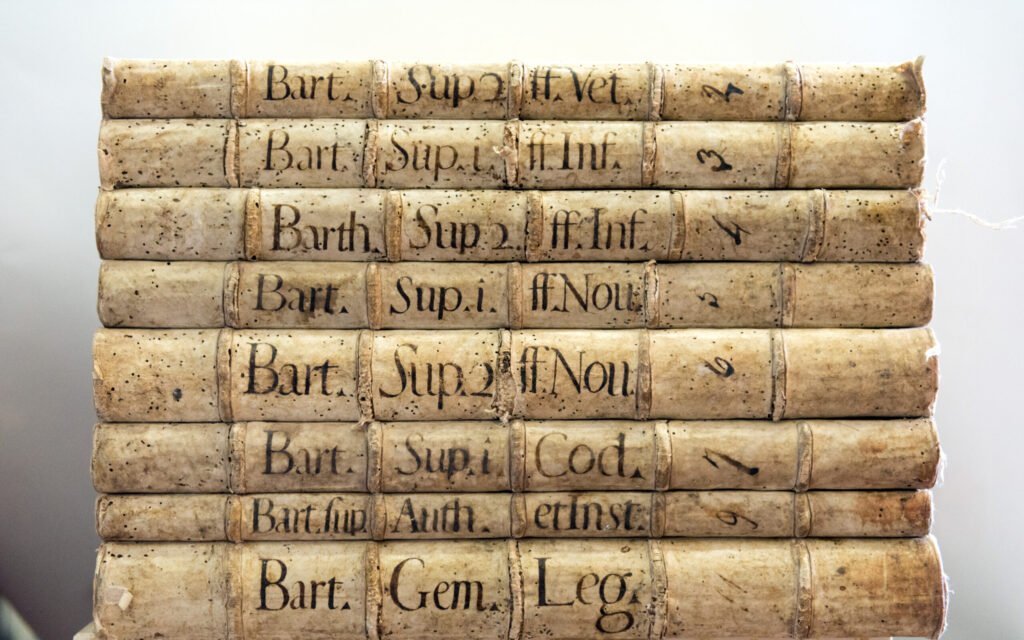 Bart. Sup.2 ff.Vet. 2
Bart. Sup.i. ff.Inf. 3
Barth. Sup.2 ff.Inf. 4
Bart. Sup.i. ff.Nou. 5
Bart. Sup.2 ff.Nou. 6
Bart. Sup.i. Cod. 7
Bart.sup. Auth. etInst. 9
Bart. Gem. Leg.